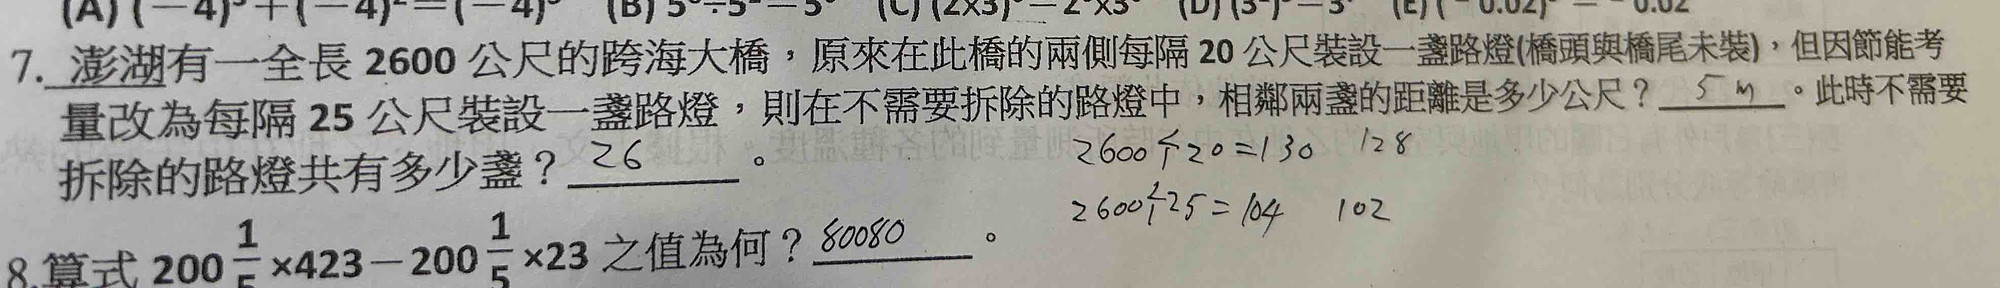 (A) (－4)³＋(－4)²＝(－4)⁵ (B) 5⁶÷5²＝5³ (C) (2×3)⁵＝2⁵×3⁵ (D) (3²)³＝3⁵ (E) (－0.02)²＝－0.02²
7. 澎湖有一全長 2600 公尺的跨海大橋，原來在此橋的兩側每隔 20 公尺裝設一盞路燈(橋頭與橋尾未裝)，但因節能考
量改為每隔 25 公尺裝設一盞路燈，則在不需要拆除的路燈中，相鄰兩盞的距離是多少公尺？ 5 m 。此時不需要
拆除的路燈共有多少盞？ 26 。
2600÷20=130 128
2600÷25=104 102
8.算式 200 1/5 ×423－200 1/5 ×23 之值為何？ 80080 。